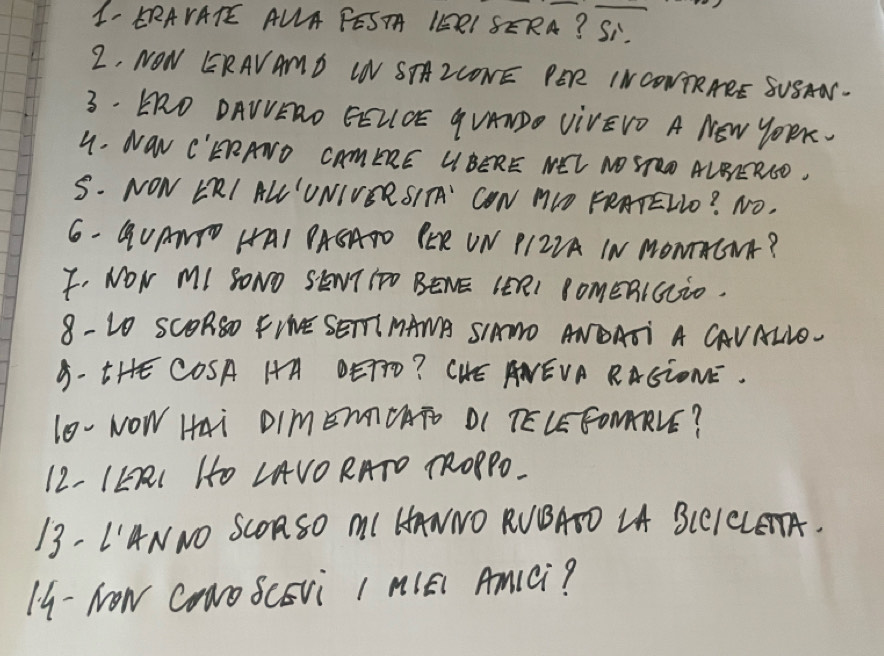 1- ERAVATE ALLA FESTA IERI SERA? SÌ.
2. NON ERAVAMO IN STAZIONE PER INCONTRARE SUSAN.
3- ERO DAVVERO FELICE QUANDO VIVEVO A NEW YORK.
4- NON C'ERANO CAMERE LIBERE NEL NOSTRO ALBERGO.
5- NON ERI ALL'UNIVERSITA' CON MIO FRATELLO? NO.
6- QUANTO HAI PAGATO PER UN PIZZA IN MONTAGNA?
7- NON MI SONO SENTITO BENE IERI POMERIGGIO.
8- LO SCORSO FINE SETTIMANA SIAMO ANDATI A CAVALLO.
9- CHE COSA HA DETTO? CHE AVEVA RAGIONE.
10- NON HAI DIMENTICATO DI TELEFONARLE?
12- IERI HO LAVORATO TROPPO.
13- L'ANNO SCORSO MI HANNO RUBATO LA BICICLETTA.
14- NON CONOSCEVI I MIEI AMICI?